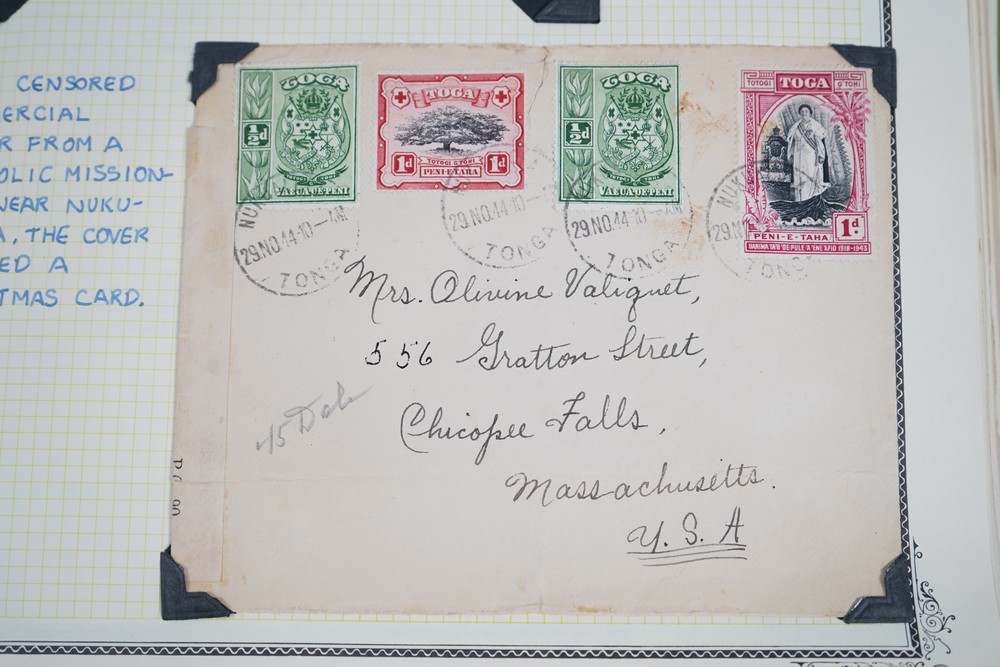 CENSORED
ERCIAL
R FROM A
OLIC MISSION-
NEAR NUKU-
A, THE COVER
ED A
TMAS CARD.
TOGA
½d
VAEUA·OE·PENI
TOGA
TOTOGI O TOHI
1d 1d
PENI·E·TAHA
TOGA
½d
VAEUA·OE·PENI
TOTOGI TOGA O TOHI
PENI-E-TAHA 1d.
1918-1943
29.NO.44-10-AM
TONGA
29.NO.44-10-
TONGA
29.NO.44-10-AM
TONGA
NUKU
TONGA
Mrs. Olivine Valiquet,
556 Gratton Street,
Chicopee Falls,
Massachusetts.
U.S.A